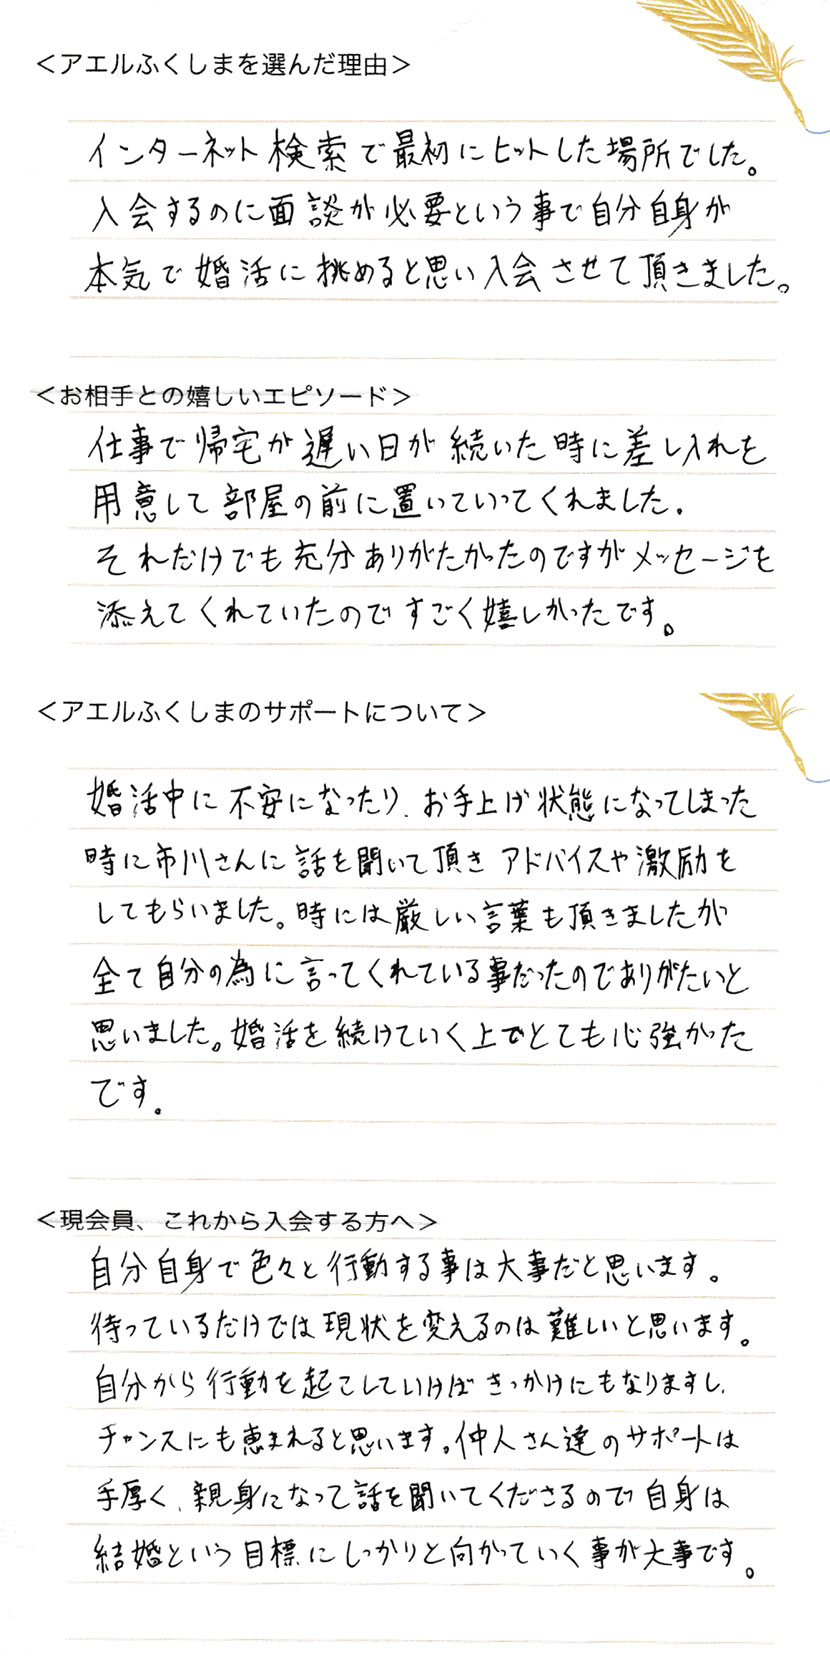 ＜アエルふくしまを選んだ理由＞
インターネット検索で最初にヒットした場所でした。
入会するのに面談が必要という事で自分自身が
本気で婚活に挑めると思い入会させて頂きました。
＜お相手との嬉しいエピソード＞
仕事で帰宅が遅い日が続いた時に差し入れを
用意して部屋の前に置いていってくれました.
それだけでも充分ありがたかったのですがメッセージを
添えてくれていたのですごく嬉しかったです。
＜アエルふくしまのサポートについて＞
婚活中に不安になったり、お手上げ状態になってしまった
時に市川さんに話を聞いて頂きアドバイスや激励を
してもらいました。時には厳しい言葉も頂きましたが
全て自分の為に言ってくれている事だったのでありがたいと
思いました。婚活を続けていく上でとても心強かった
です。
＜現会員、これから入会する方へ＞
自分自身で色々と行動する事は大事だと思います。
待っているだけでは現状を変えるのは難しいと思います。
自分から行動を起こしていけばきっかけにもなりますし、
チャンスにも恵まれると思います。仲人さん達のサポートは
手厚く、親身になって話を聞いてくださるので自身は
結婚という目標にしっかりと向かっていく事が大事です。